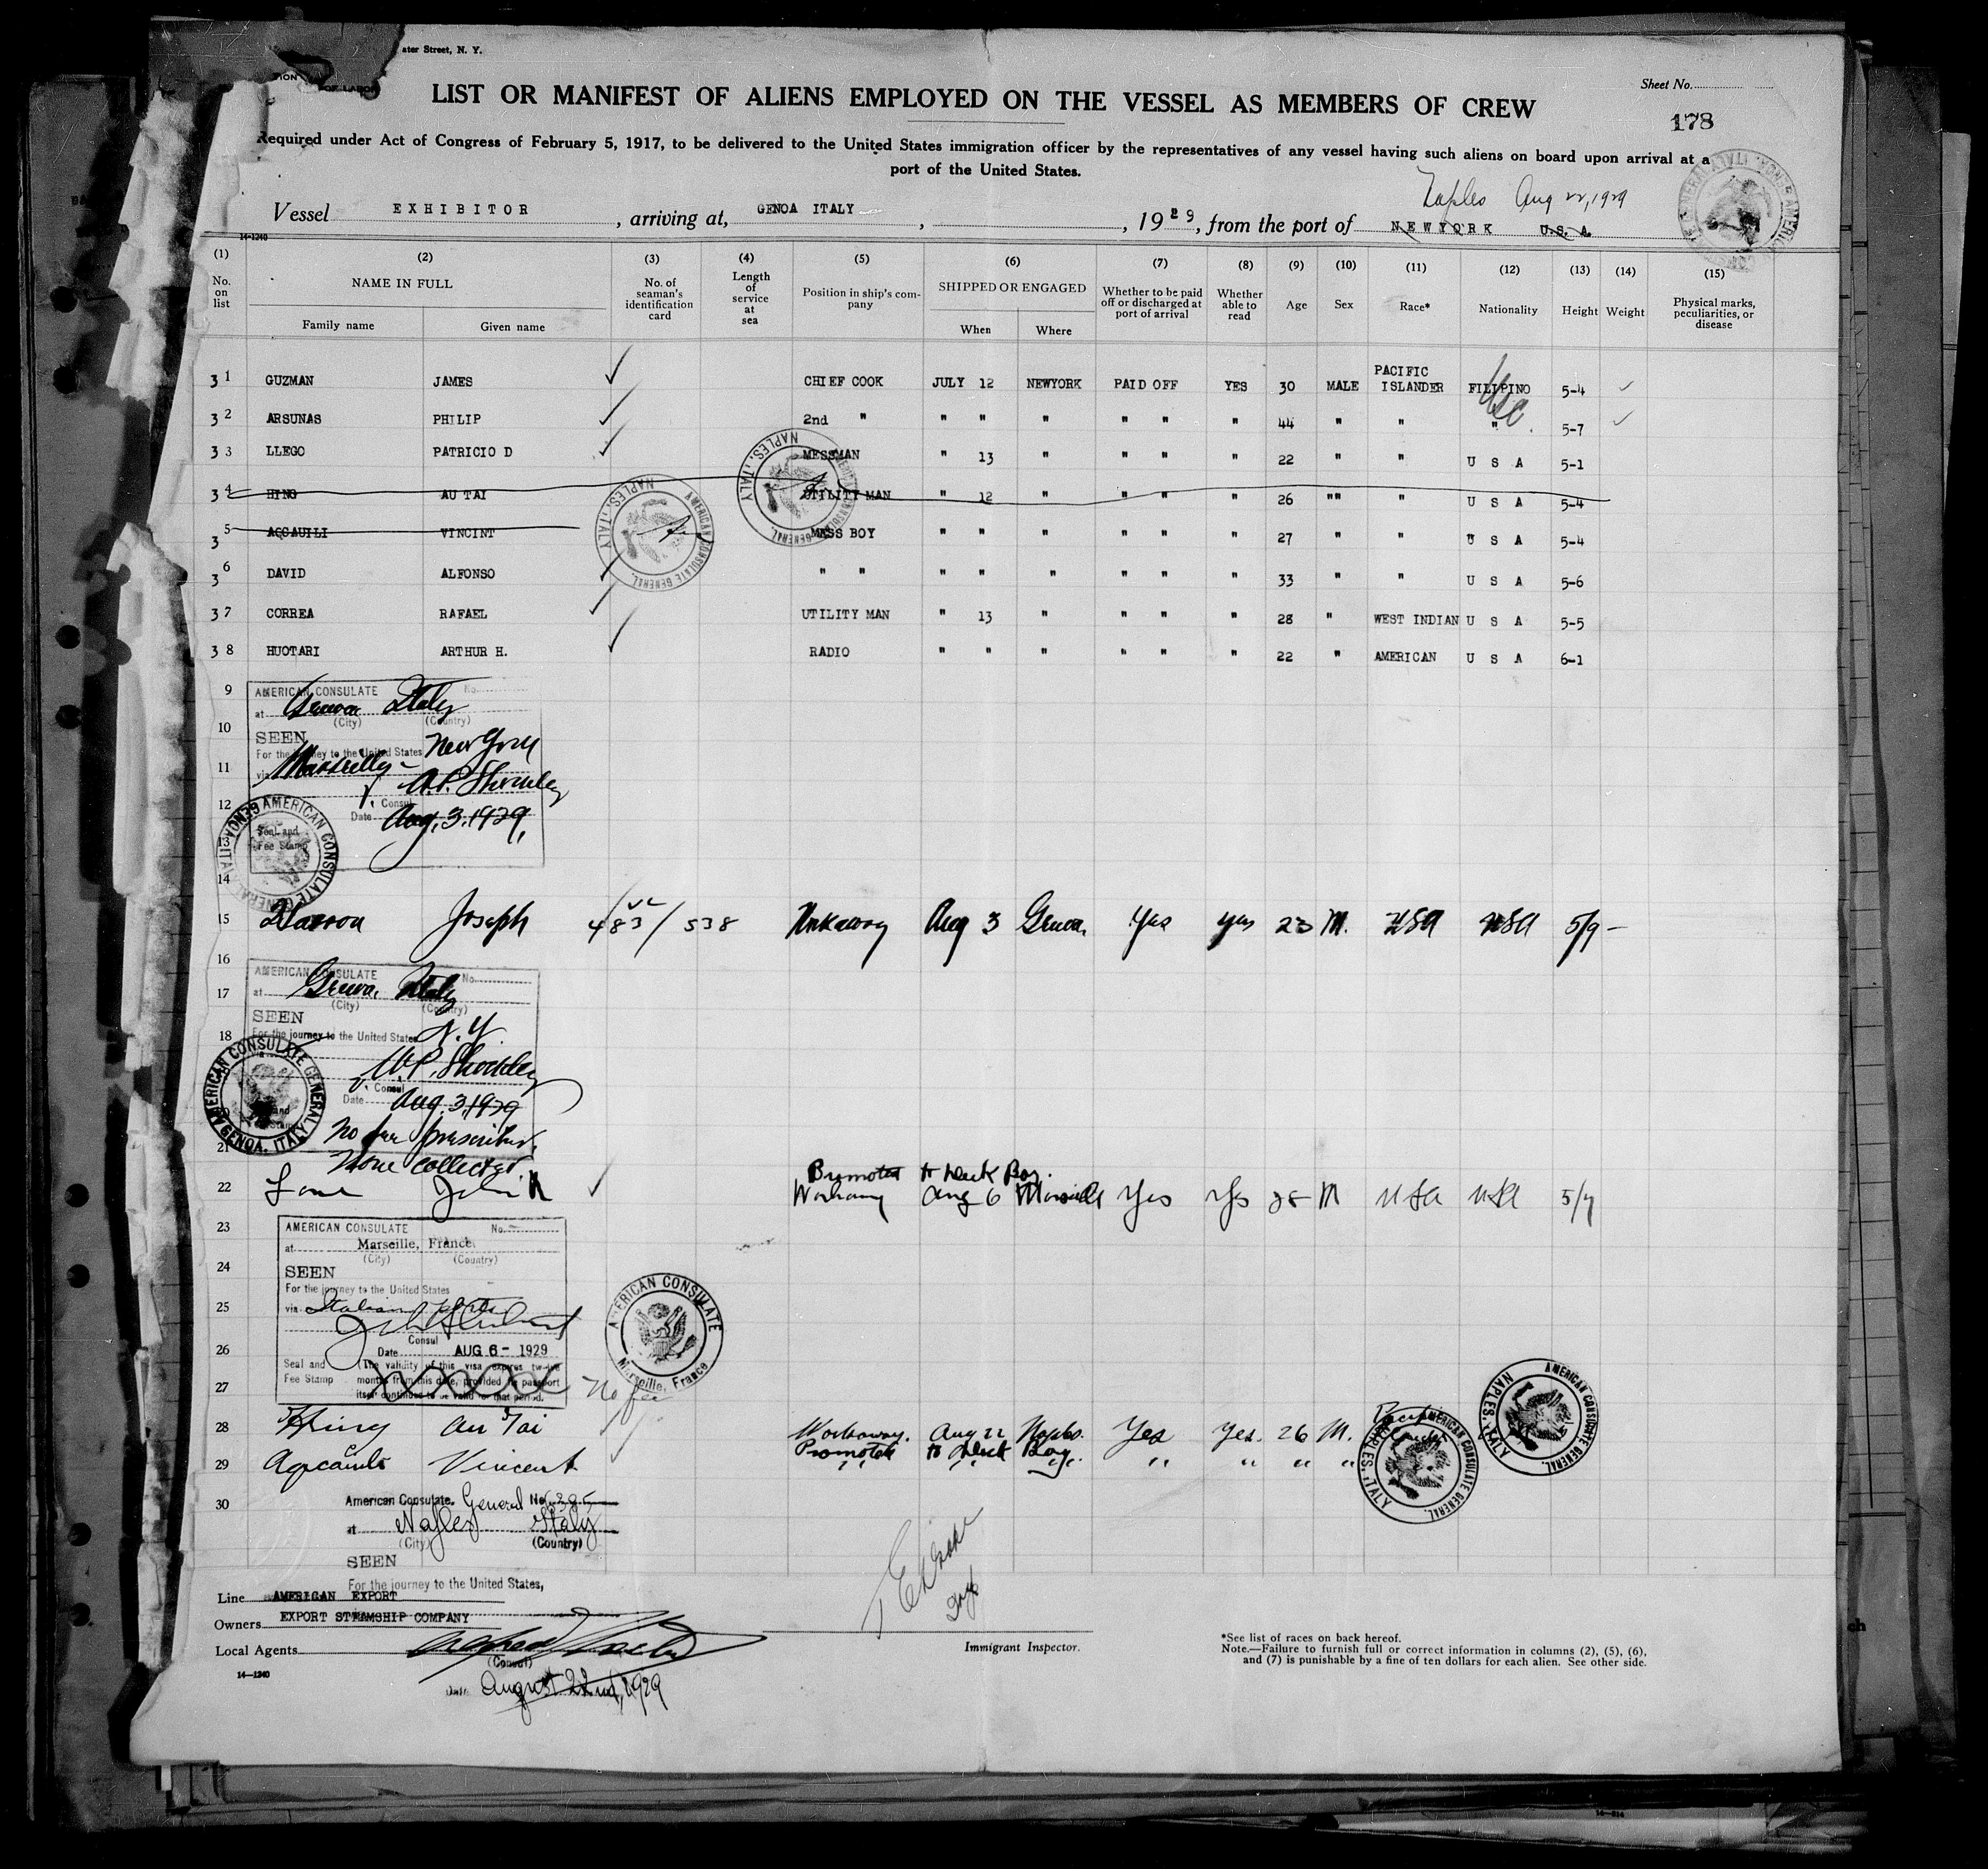 ater Street, N. Y.
TION
OF LABOR
Sheet No.
LIST OR MANIFEST OF ALIENS EMPLOYED ON THE VESSEL AS MEMBERS OF CREW
178
Required under Act of Congress of February 5, 1917, to be delivered to the United States immigration officer by the representatives of any vessel having such aliens on board upon arrival at a
port of the United States.
Naples Aug 22, 1929
Vessel EXHIBITOR , arriving at, GENOA ITALY , , 1929, from the port of NEWYORK U.S.A.
14-1240
(1) (2) (3) (4) (5) (6) (7) (8) (9) (10) (11) (12) (13) (14) (15)
No. on list NAME IN FULL Family name Given name No. of seaman's identification card Length of service at sea Position in ship's company SHIPPED OR ENGAGED When Where Whether to be paid off or discharged at port of arrival Whether able to read Age Sex Race* Nationality Height Weight Physical marks, peculiarities, or disease
31 GUZMAN JAMES CHIEF COOK JULY 12 NEWYORK PAID OFF YES 30 MALE PACIFIC ISLANDER FILIPINO 5-4
32 ARSUNAS PHILIP 2nd " " " " " " " 44 " " " 5-7
33 LLEGO PATRICIO D MESSMAN " 13 " " " " 22 " " U S A 5-1
34 HING AU TAI UTILITY MAN " 12 " " " " 26 "" " U S A 5-4
35 AGCAUILI VINCINT MESS BOY " " " " " " 27 " " U S A 5-4
36 DAVID ALFONSO " " " " " " " " 33 " " U S A 5-6
37 CORREA RAFAEL UTILITY MAN " 13 " " " " 28 " WEST INDIAN U S A 5-5
38 HUOTARI ARTHUR H. RADIO " " " " " " 22 " AMERICAN U S A 6-1
9 AMERICAN CONSULATE No.
at Genoa Italy
(City) (Country)
10 SEEN
For the journey to the United States New York
11 via Marseilles
A.P. Shockley
12 Consul
Date Aug. 3, 1929,
13 Seal and
Fee Stamp
AMERICAN CONSULATE GENERAL GENOA, ITALY
14
15 Joseph 483/538 Workaway Aug 3 Genoa. Yes yes 23 M. USA USA 5/9 -
16 AMERICAN CONSULATE No.
17 at Genoa, Italy
(City) (Country)
SEEN
18 For the journey to the United States N.Y.
W.P. Shockley
Consul
Date Aug. 3, 1929
AMERICAN CONSULATE GENERAL GENOA, ITALY
No fee prescribed,
21 None collected.
Promoted to Deck Boy.
22 John Workaway Aug 6 Marseille Yes Yes 28 M USA USA 5/7
23 AMERICAN CONSULATE No.
at Marseille, France
(City) (Country)
24 SEEN
For the journey to the United States
25 via Italian ports
Consul
26 Date AUG 6- 1929
Seal and Fee Stamp (The validity of this visa expires twelve
27 months from this date, provided the passport
itself continues to be valid for that period.
No fee
AMERICAN CONSULATE Marseille, France
28 Hing Au Tai Workaway. Aug 22 Naples. Yes Yes. 26 M. Pacific
Promoted to Deck Boy
29 Agcaoili Vincent " " " " " " "
AMERICAN CONSULATE GENERAL. NAPLES, ITALY
AMERICAN CONSULATE GENERAL. NAPLES, ITALY
30 American Consulate General No. 385
at Naples Italy
(City) (Country)
SEEN
For the journey to the United States,
Line AMERICAN EXPORT
Owners EXPORT STEAMSHIP COMPANY
Local Agents
(Consul)
Immigrant Inspector.
14-1240
Date August 22nd, 1929
*See list of races on back hereof.
Note.—Failure to furnish full or correct information in columns (2), (5), (6),
and (7) is punishable by a fine of ten dollars for each alien. See other side.